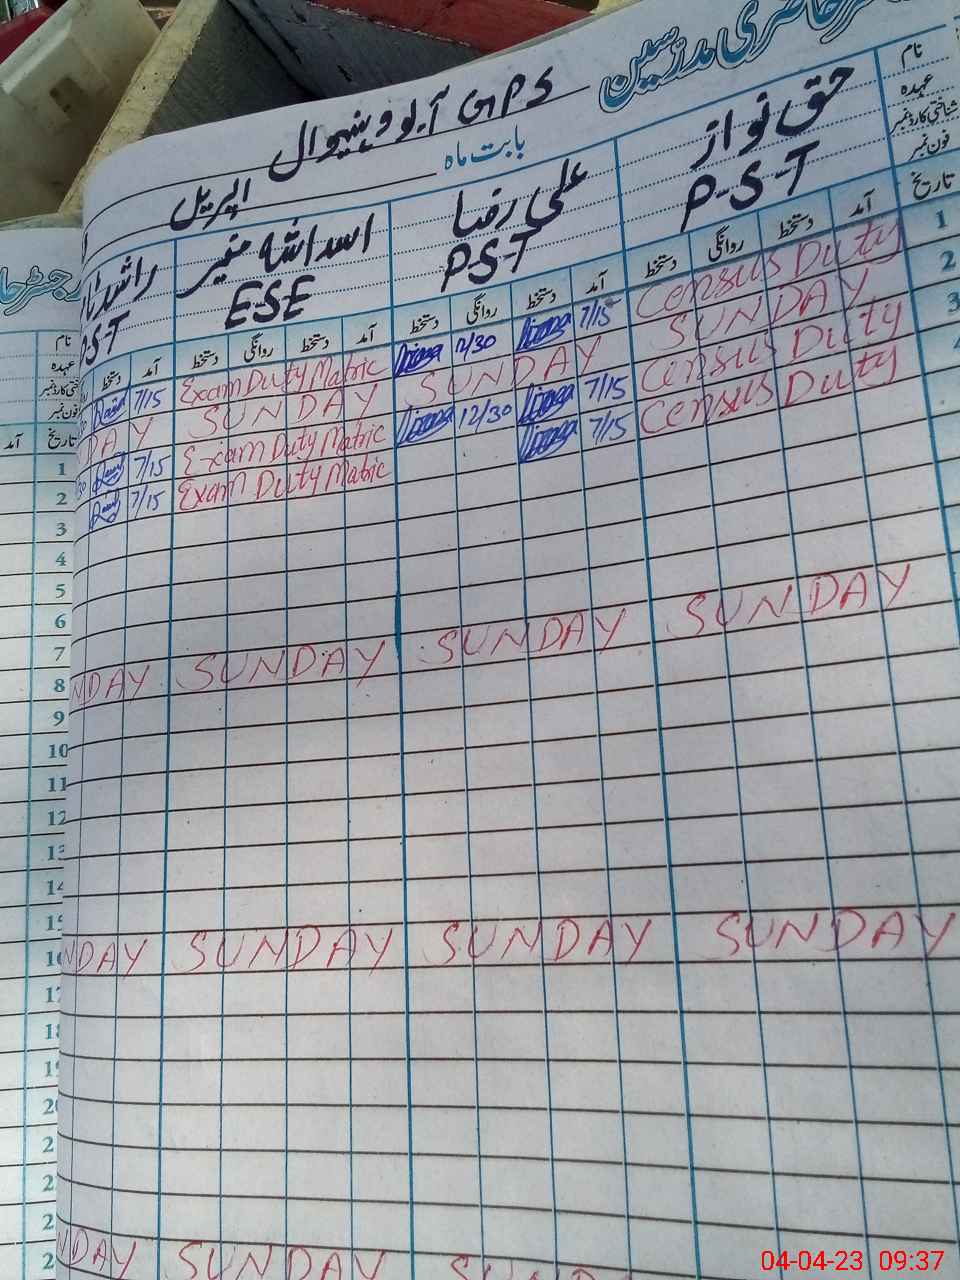 حاضری مدرسین
GPS آبادی
بابت ماہ اپریل
نام
عہدہ
شناختی کارڈ نمبر
فون نمبر
تاریخ
حق نواز
P-S-T
علی رضا
PST
اسد اللہ منیر
ESE
راشد
PST
آمد دستخط روانگی دستخط
آمد دستخط روانگی دستخط
آمد دستخط روانگی دستخط
آمد دستخط
1 Census Duty
7/15 12/30
Exam Duty Matric
7/15
2 SUNDAY
SUNDAY
SUNDAY
DAY
3 Census Duty
7/15 12/30
Exam Duty Matric
7/15
Census Duty
7/15
Exam Duty Matric
7/15
SUNDAY
SUNDAY
SUNDAY
NDAY
SUNDAY
SUNDAY
SUNDAY
NDAY
SUNDAY
NDAY
رجسٹر
نام
عہدہ
فون نمبر
تاریخ آمد
1
2
3
4
5
6
7
8
9
10
11
12
13
14
15
16
17
18
19
04-04-23 09:37